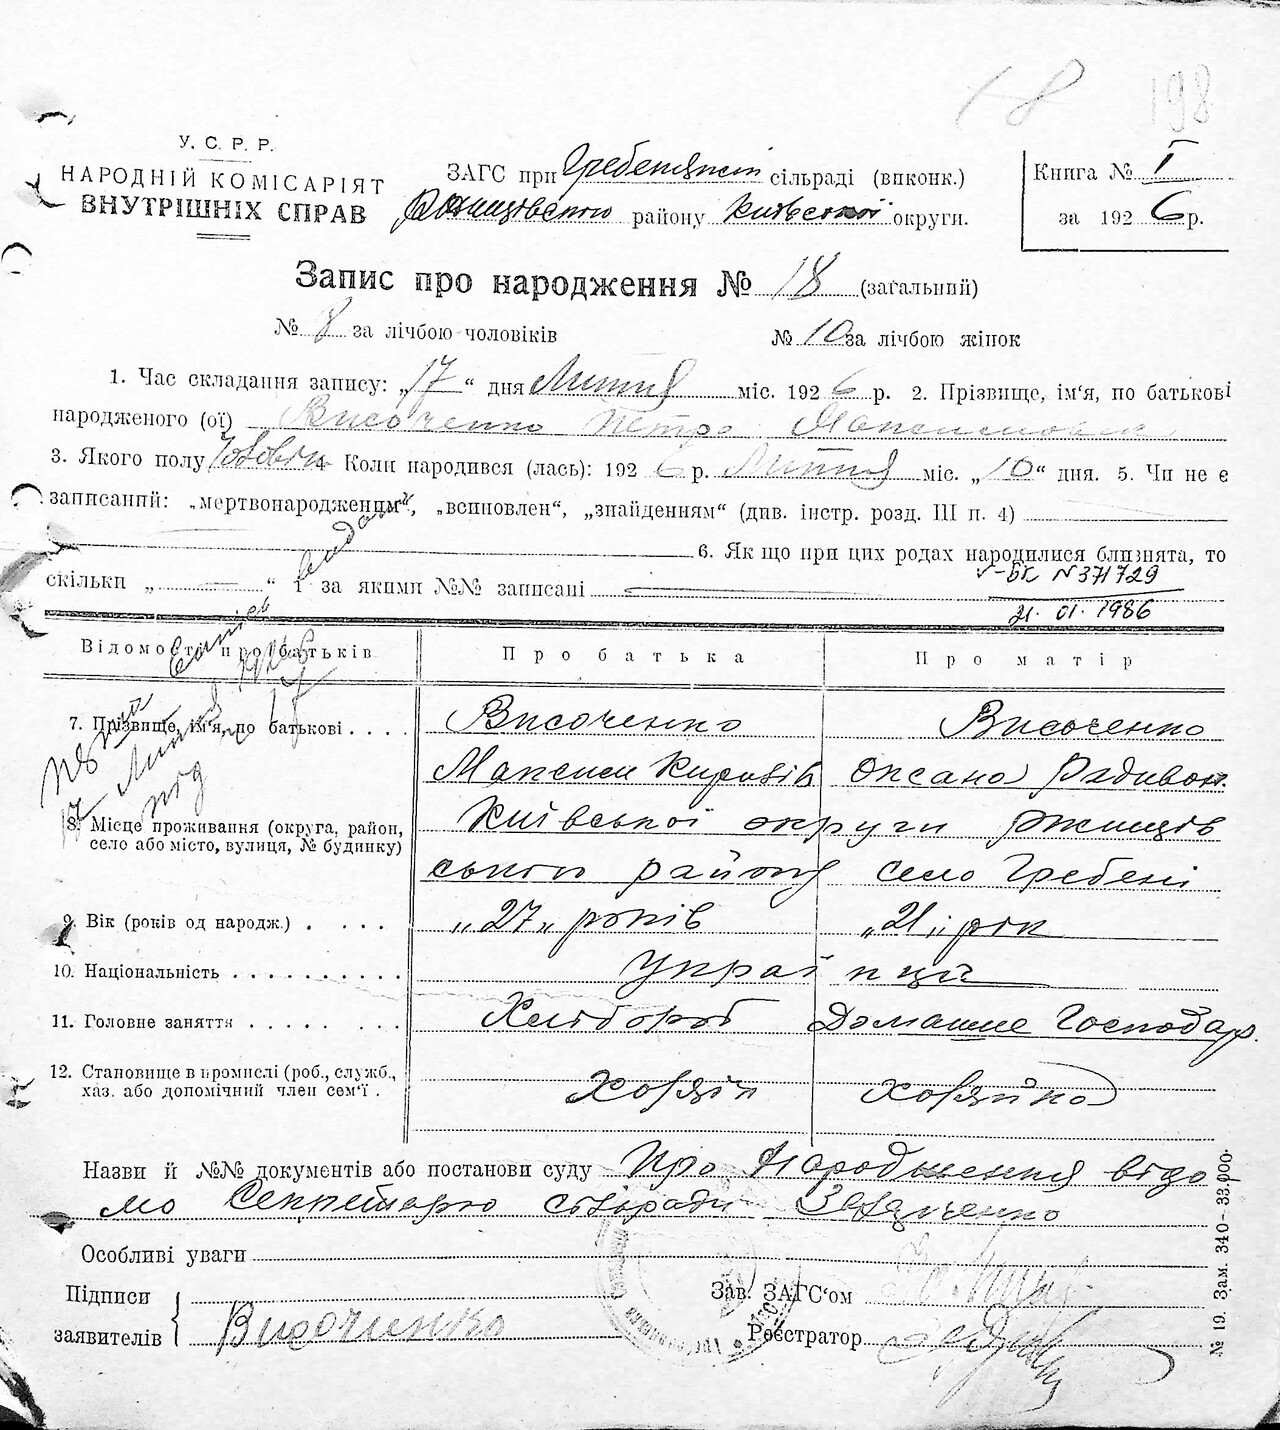 18 198
У. С. Р. Р.
НАРОДНІЙ КОМІСАРІЯТ
ВНУТРІШНІХ СПРАВ
ЗАГС при Гребенянсій сільраді (виконк.)
Ржищівського району Київської округи.
Книга № I
за 1926 р.
Запис про народження № 18 (загальний)
№ 8 за лічбою чоловіків № 10 за лічбою жінок
1. Час складання запису: „17“ дня Липня міс. 1926 р. 2. Прізвище, ім'я, по батькові
народженого (ої) Височенко Петро Максимович
3. Якого полу Чоловік 4. Коли народився (лась): 1926 р. Липня міс. „10“ дня. 5. Чи не є
записаний: „мертвонародженим“, „всиновлен“, „знайденням“ (див. інстр. розд. III п. 4)
6. Як що при цих родах народилися близнята, то
скільки „ “ і за якими №№ записані
V-БК N 371729
21. 01. 1986
Відомості про батьків Про батька Про матір
7. Прізвище, ім'я, по батькові . . . . Височенко Височенко
Максим Кирилів Оксана Радивон.
8. Місце проживання (округа, район, Київської округи Ржищів
село або місто, вулиця, № будинку) ського району село Гребені
9. Вік (років од народж.) . . . . „27„ років „21„ рік
10. Національність . . . . . . . . . . Українці
11. Головне заняття . . . . . . . . Хлібороб Домашнє Господар.
12. Становище в промислі (роб., служб., Хозяїн Хозяйка
хаз. або допомічний член сем'ї .
Назви й №№ документів або постанови суду Про Народження відо
мо Секретарю сільради
Особливі уваги
Підписи Зав. ЗАГС'ом
заявителів Височинко Реєстратор
№ 19. Зам. 340 - 33.000-